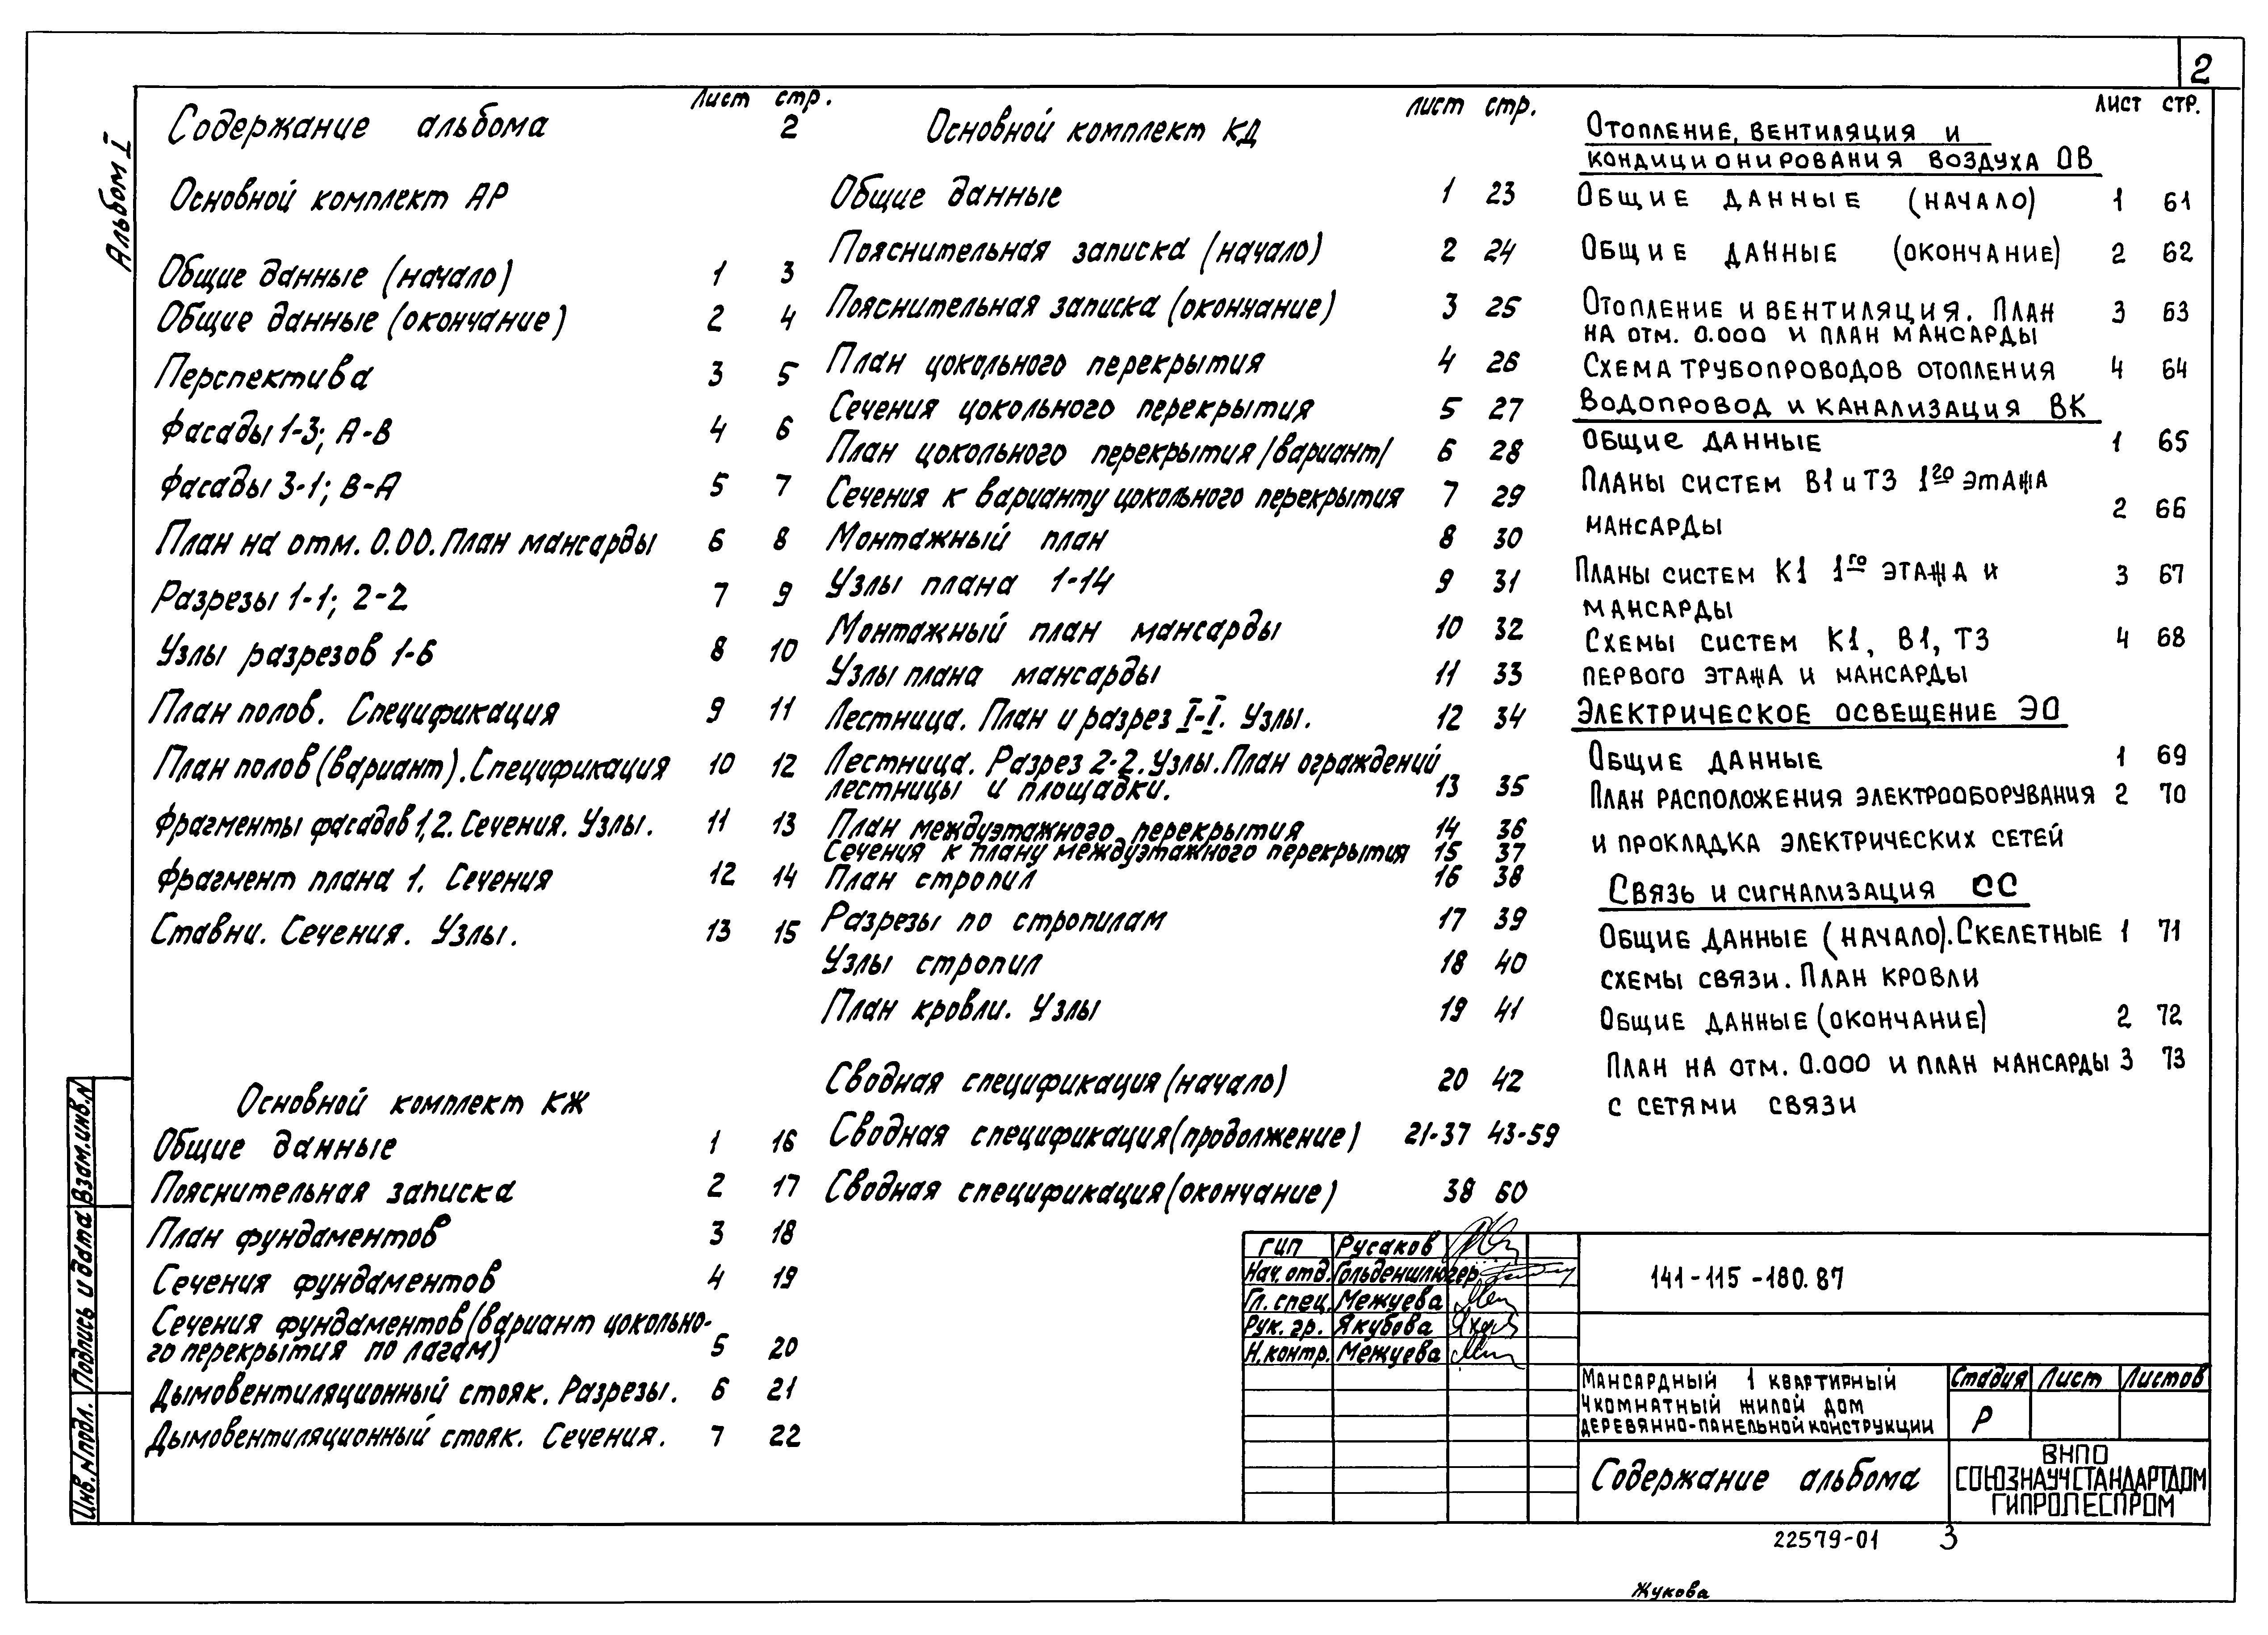 2
Альбом I
Лист стр.
Содержание альбома 2
Основной комплект АР
Общие данные (начало) 1 3
Общие данные (окончание) 2 4
Перспектива 3 5
Фасады 1-3; А-В 4 6
Фасады 3-1; В-А 5 7
План на отм. 0.00. План мансарды 6 8
Разрезы 1-1; 2-2 7 9
Узлы разрезов 1-6 8 10
План полов. Спецификация 9 11
План полов (вариант). Спецификация 10 12
Фрагменты фасадов 1,2. Сечения. Узлы. 11 13
Фрагмент плана 1. Сечения 12 14
Ставни. Сечения. Узлы. 13 15
Основной комплект КЖ
Общие данные 1 16
Пояснительная записка 2 17
План фундаментов 3 18
Сечения фундаментов 4 19
Сечения фундаментов (вариант цокольно-
го перекрытия по лагам) 5 20
Дымовентиляционный стояк. Разрезы. 6 21
Дымовентиляционный стояк. Сечения. 7 22
лист стр.
Основной комплект КД
Общие данные 1 23
Пояснительная записка (начало) 2 24
Пояснительная записка (окончание) 3 25
План цокольного перекрытия 4 26
Сечения цокольного перекрытия 5 27
План цокольного перекрытия /вариант/ 6 28
Сечения к варианту цокольного перекрытия 7 29
Монтажный план 8 30
Узлы плана 1-14 9 31
Монтажный план мансарды 10 32
Узлы плана мансарды 11 33
Лестница. План и разрез I-I. Узлы. 12 34
Лестница. Разрез 2-2. Узлы. План ограждений
лестницы и площадки. 13 35
План междуэтажного перекрытия 14 36
Сечения к плану междуэтажного перекрытия 15 37
План стропил 16 38
Разрезы по стропилам 17 39
Узлы стропил 18 40
План кровли. Узлы 19 41
Сводная спецификация (начало) 20 42
Сводная спецификация (продолжение) 21-37 43-59
Сводная спецификация (окончание) 38 60
лист стр.
Отопление, вентиляция и
кондиционирования воздуха ОВ
Общие данные (начало) 1 61
Общие данные (окончание) 2 62
Отопление и вентиляция. План 3 63
на отм. 0.000 и план мансарды
Схема трубопроводов отопления 4 64
Водопровод и канализация ВК
Общие данные 1 65
Планы систем В1 и Т3 1го этажа
мансарды 2 66
Планы систем К1 1го этажа и 3 67
мансарды
Схемы систем К1, В1, Т3 4 68
первого этажа и мансарды
Электрическое освещение ЭО
Общие данные 1 69
План расположения электрооборувания 2 70
и прокладка электрических сетей
Связь и сигнализация СС
Общие данные (начало). Скелетные 1 71
схемы связи. План кровли
Общие данные (окончание) 2 72
План на отм. 0.000 и план мансарды 3 73
с сетями связи
Взам.инв.N
Подпись и дата
Инв.Nподл.
ГИП Русаков
Нач. отд. Гольденшлюгер
Гл. спец. Межуева
Рук. гр. Якубова
Н.контр. Межуева
141-115-180.87
Мансардный 1 квартирный
4комнатный жилой дом
деревянно-панельной конструкции
Стадия Лист Листов
Р
Содержание альбома
ВНПО
СОЮЗНАУЧСТАНДАРТДОМ
ГИПРОЛЕСПРОМ
22579-01 3
Жукова